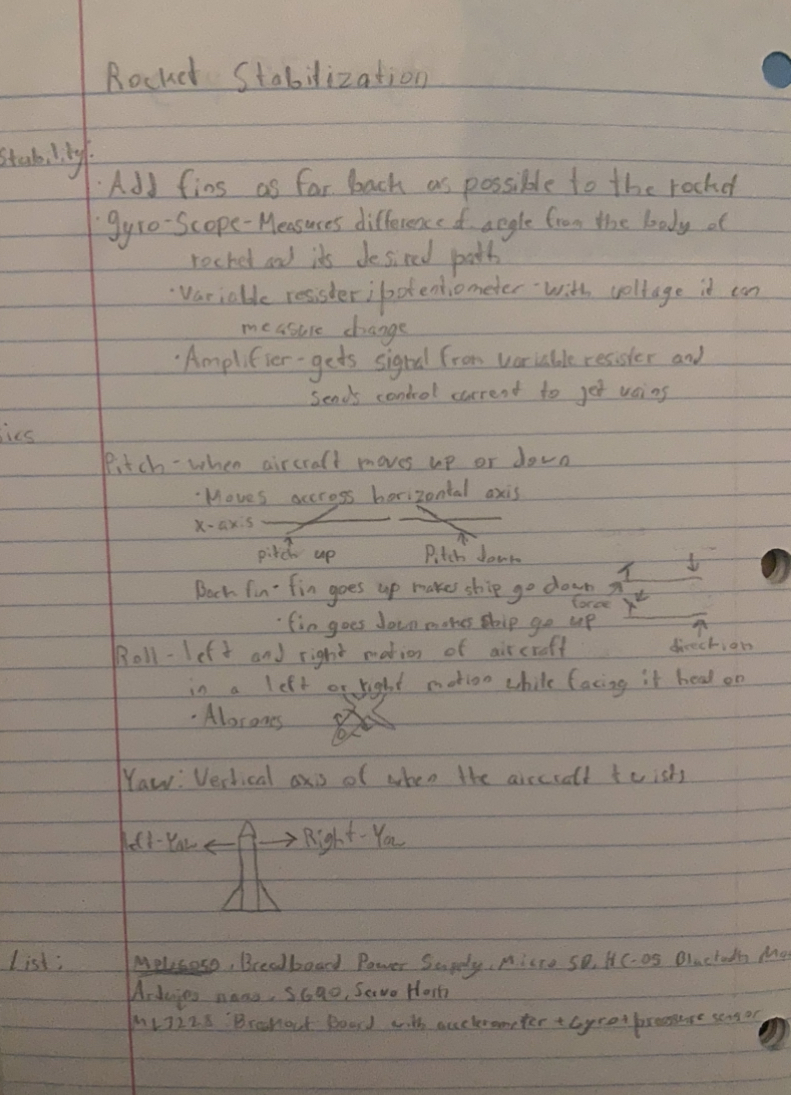 Rocket Stabilization
Stability:
· Add fins as far back as possible to the rocket
· Gyro-Scope-Measures difference of angle from the body of
rocket and its desired path
· Variable resister/potentiometer - With voltage it can
measure change
· Amplifier - gets signal from variable resister and
sends control current to jet vains
ics
Pitch - when aircraft moves up or down
· Moves accross horizontal axis
x-axis
pitch up Pitch down
Back fin - fin goes up makes ship go down
force
· fin goes down makes ship go up
direction
Roll - left and right motion of aircraft
in a left or right motion while facing it head on
· Alorones
Yaw: Vertical axis of when the aircraft twists
left-Yaw Right-Yaw
List: MPU6050, Breadboard Power Supply, Micro SD, HC-05
Arduino nano, SG90, Servo
Breakout Board with accelerometer + Gyro + pressure sensor